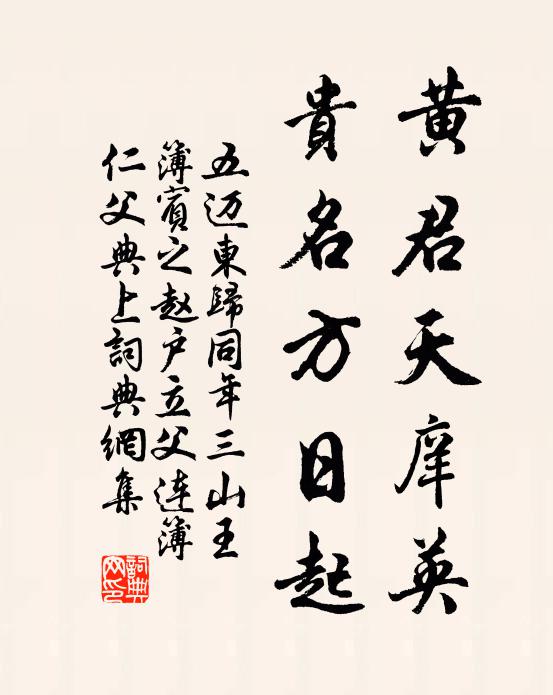 黄君天庠英
貴名方日起
五迈東歸同年三山王
簿賓之赵户立父连簿
仁父典上詞典網集
詞典网印